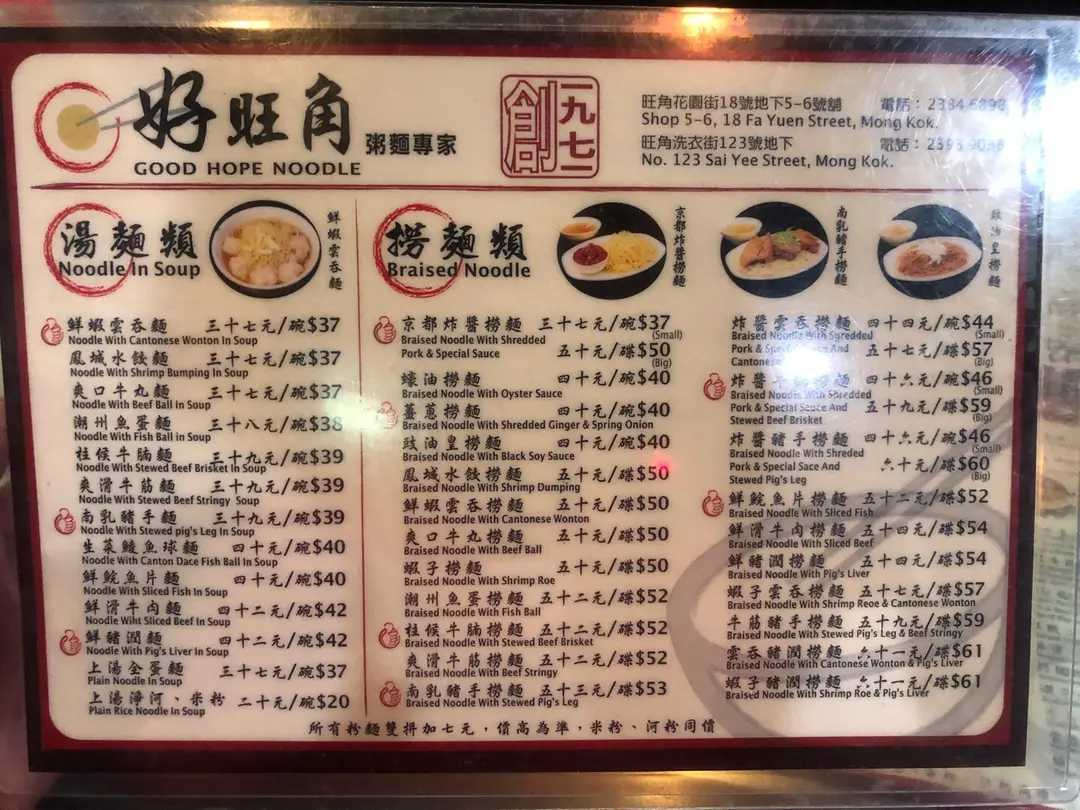 好旺角 粥麵專家
GOOD HOPE NOODLE
創一九七一
旺角花園街18號地下5-6號舖 電話：2384 6898
Shop 5-6, 18 Fa Yuen Street, Mong Kok.
旺角洗衣街123號地下 電話：
No. 123 Sai Yee Street, Mong Kok.
湯麵類
Noodle In Soup
鮮蝦雲吞麵
鮮蝦雲吞麵 三十七元/碗$37
Noodle With Cantonese Wonton In Soup
鳳城水餃麵 三十七元/碗$37
Noodle With Shrimp Bumping In Soup
爽口牛丸麵 三十七元/碗$37
Noodle With Beef Ball In Soup
潮州魚蛋麵 三十八元/碗$38
Noodle With Fish Ball in Soup
柱候牛腩麵 三十九元/碗$39
Noodle With Stewed Beef Brisket In Soup
爽滑牛筋麵 三十九元/碗$39
Noodle With Stewed Beef Stringy Soup
南乳豬手麵 三十九元/碗$39
Noodle With Stewed pig's Leg In Soup
生菜鯪魚球麵 四十元/碗$40
Noodle With Canton Dace Fish Ball In Soup
鮮鯇魚片麵 四十元/碗$40
Noodle With Sliced Fish In Soup
鮮滑牛肉麵 四十二元/碗$42
Noodle Wiht Sliced Beef In Soup
鮮豬潤麵 四十二元/碗$42
Noodle With Pig's Liver In Soup
上湯全蛋麵 三十七元/碗$37
Plain Noodle In Soup
上湯淨河、米粉 二十元/碗$20
Plain Rice Noodle In Soup
撈麵類
Braised Noodle
京都炸醬撈麵
南乳豬手撈麵
豉油皇撈麵
京都炸醬撈麵 三十七元/碗$37
Braised Noodle With Shredded (Small)
Pork & Special Sauce 五十元/碟$50
(Big)
蠔油撈麵 四十元/碗$40
Braised Noodle With Oyster Sauce
薑蔥撈麵 四十元/碗$40
Braised Noodle With Shredded Ginger & Spring Onion
豉油皇撈麵 四十元/碗$40
Braised Noodle With Black Soy Sauce
鳳城水餃撈麵 五十元/碟$50
Braised Noodle With Shrimp Dumping
鮮蝦雲吞撈麵 五十元/碟$50
Braised Noodle With Cantonese Wonton
爽口牛丸撈麵 五十元/碟$50
Braised Noodle With Beef Ball
蝦子撈麵 五十元/碟$50
Braised Noodle With Shrimp Roe
潮州魚蛋撈麵 五十二元/碟$52
Braised Noodle With Fish Ball
柱候牛腩撈麵 五十二元/碟$52
Braised Noodle With Stewed Beef Brisket
爽滑牛筋撈麵 五十二元/碟$52
Braised Noodle With Beef Stringy
南乳豬手撈麵 五十三元/碟$53
Braised Noodle With Stewed Pig's Leg
炸醬雲吞撈麵 四十四元/碗$44
Braised Noodle With Shredded (Small)
Pork & Special Sauce And 五十七元/碟$57
Cantonese (Big)
炸醬牛腩撈麵 四十六元/碗$46
Braised Noodle With Shredded (Small)
Pork & Special Sauce And 五十九元/碟$59
Stewed Beef Brisket (Big)
炸醬豬手撈麵 四十六元/碗$46
Braised Noodle With Shreded (Small)
Pork & Special Sace And 六十元/碟$60
Stewed Pig's Leg (Big)
鮮鯇魚片撈麵 五十二元/碟$52
Braised Noodle With Sliced Fish
鮮滑牛肉撈麵 五十四元/碟$54
Braised Noodle With Sliced Beef
鮮豬潤撈麵 五十四元/碟$54
Braised Noodle With Pig's Liver
蝦子雲吞撈麵 五十七元/碟$57
Braised Noodle With Shrimp Reoe & Cantonese Wonton
牛筋豬手撈麵 五十九元/碟$59
Braised Noodle With Stewed Pig's Leg & Beef Stringy
雲吞豬潤撈麵 六十一元/碟$61
Braised Noodle With Cantonese Wonton & Pig's Liver
蝦子豬潤撈麵 六十一元/碟$61
Braised Noodle With Shrimp Roe & Pig's Liver
所有粉麵雙拼加七元，價高為準，米粉、河粉同價